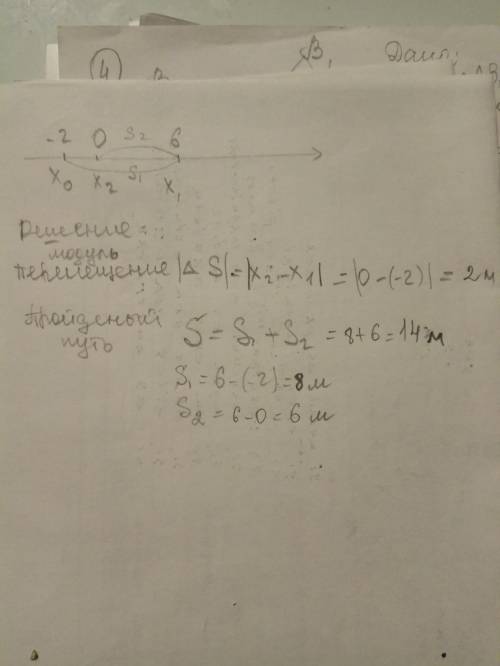 4 В₁ Дано:
-2 0 S₂ 6
X₀ X₂ S₁ X₁
Решение:
модуль
перемещение |Δ S| = |X₂ - X₁| = |0 - (-2)| = 2 м
Пройденый путь S = S₁ + S₂ = 8 + 6 = 14 м
S₁ = 6 - (-2) = 8 м
S₂ = 6 - 0 = 6 м